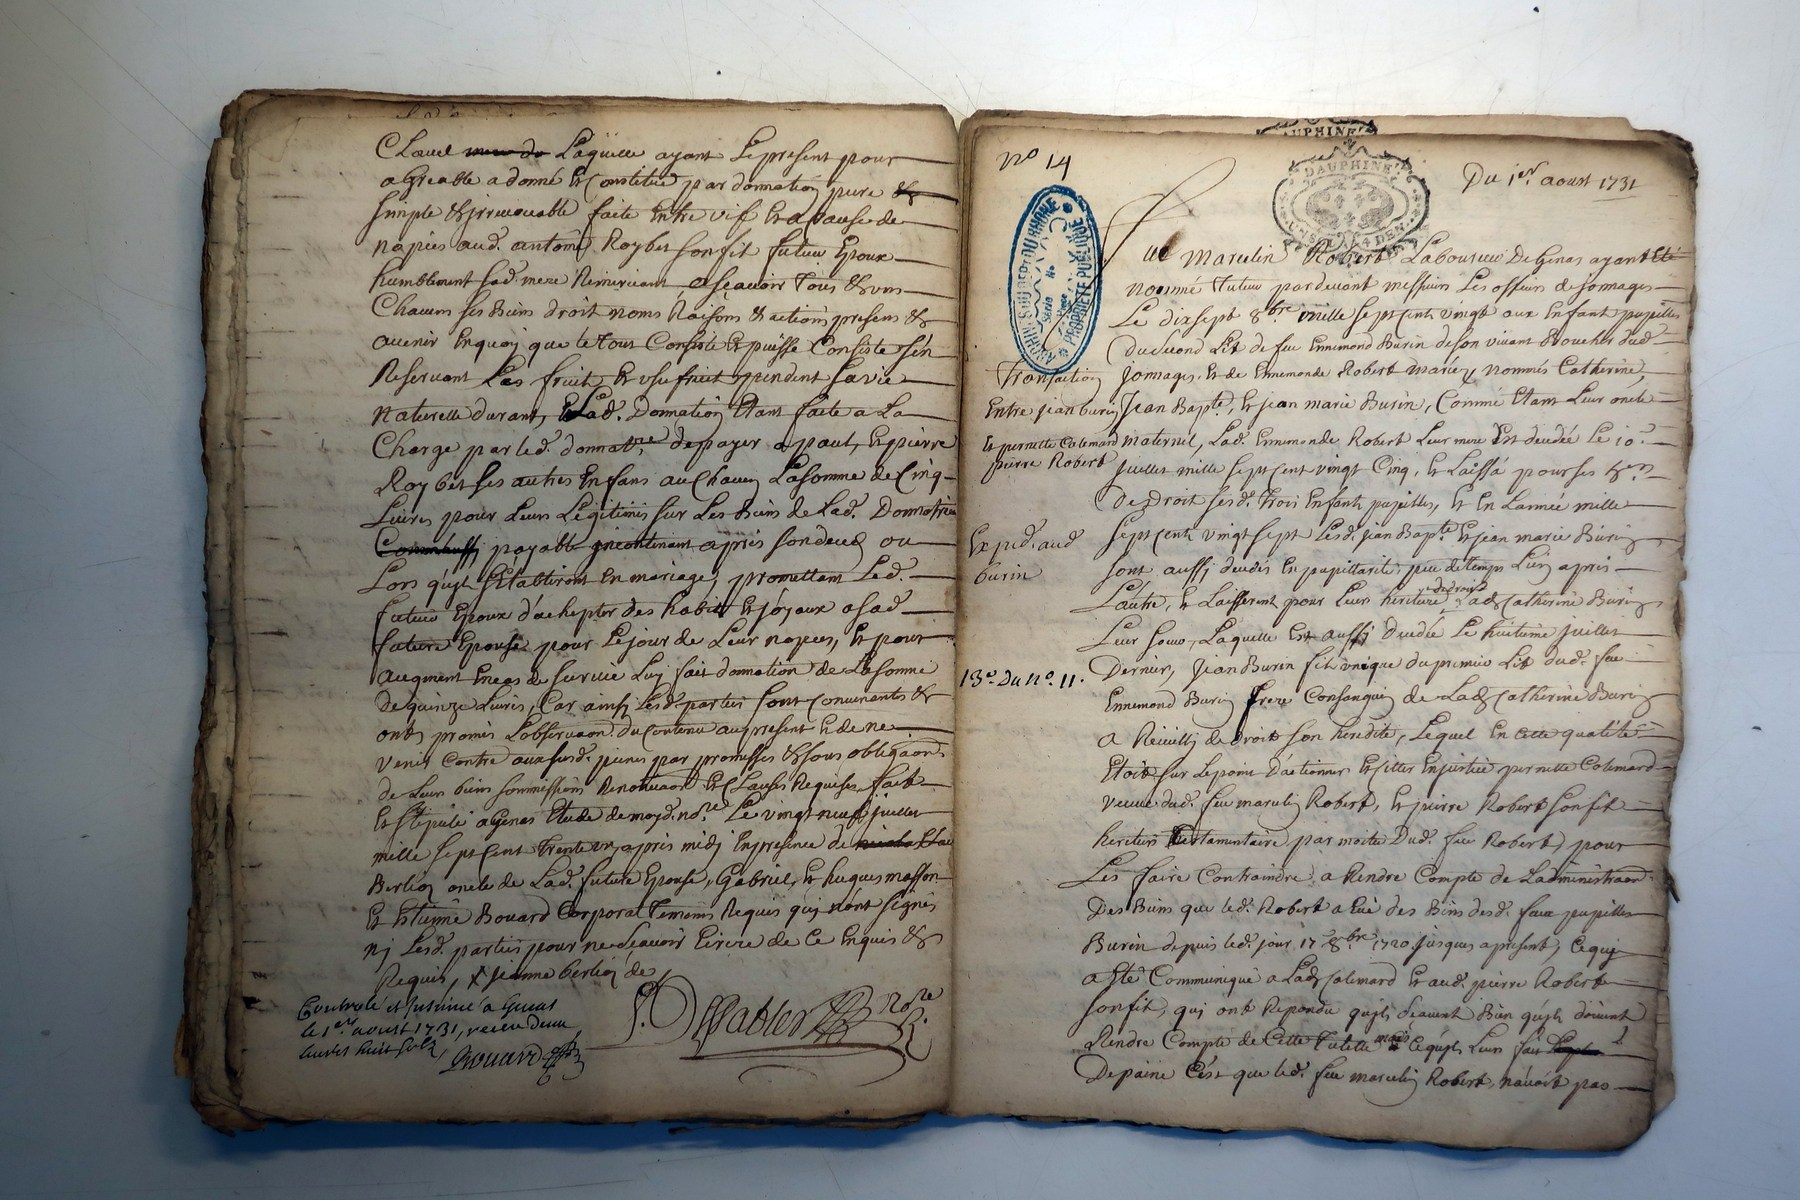 Clauel Laquelle ayant Lepresent pour
agreable a donné & Constitué par donnation pure &
simple & jrreuocable faite Entre vif & a Cause de
nopces aud. antoine Roybet son fil futeur Epoux
humblement sad. mere Remerciant ascauoir Tous & vns
Chacuns ses Biens droit noms Raisons & actions presens &
auenir Enquoy que le Tout Consiste & puisse Consister s'en
Reservant Les fruit & vsufruit pendent sa vie
naturelle durant, & Lad. Donnation Etant faite a La
Charge par led. donnatre. de payer a paul, & pierre
Roybet ses autres Enfans au Chacun La somme de Cinq
Liures pour Leurs Legitimes sur Les Biens de Lad. Donnatrice
payable jncontinent apres son deces ou
Lors qu'jls s'Etabliront En mariage, promettant Led.
futeur Epoux d'achepter des habit & joyaux a sad.
future Epouse pour Le jour de Leur nopces, & pour
augment En cas de survie Luy fait donnation de La somme
de quinze Liures, Car ainsj Lesd. parties sont Conuenants &
onts promis L'observaon. du Contenu au present & de ne
venir Contre aux susd. peines par promesses & sous obligaon.
de Leurs biens sommissions Renontiaon. & Clauses Requises fait
& stipulé a Genas Etude de moyd. nore. Le vingt neuf juillet
mille sept Cent Trente vn, apres midj En presence de
Berlioz oncle de Lad. future Epouse, Gabriel, & hugues masson
& Etienne Bouard Corporal Temoins Requis quj n'ont signés
nj Lesd. parties pour ne scauoir Ecrire de Ce Enquis &
Requis, jeanne berlioz de
Controlé et Insinué a Genas
le 1er. aoust 1731, receu deux
liures huit sols, Bouard
nore
no 14
Du 1er. aoust 1731
DAUPHINE
DAUPHINE
4 DEN
PROPRIETE PUBLIQUE
Marcelin Robert Laboureur De Genas ayant Eté
nommé Tuteur pardeuant messieurs Les officiers de jonnages
Le dixsept 8bre mille sept Cents vingt aux Enfant pupilles
du second Lit de feu Ennemond Burin de son viuant Boucher dud.
Transaction
Entre jean burin
& pernette Colemard
pierre Robert
jonnages & de Ennemonde Robert mariéz, nommés Catherine,
Jean Bapte, & jean marie Burin, Comme Etant Leur oncle
maternel, Lad. Ennemonde Robert Leur mere Est decedée Le 10e.
juillet mille sept Cent vingt Cinq, & Laissé pour ses
de Droit sesd. Trois Enfants pupilles, & En L'année mille
Expéd. aud.
burin
sept Cents vingt sept Lesd. jean Bapte & jean marie Burin
sont aussj decedés En pupillarité peu de temps L'un apres
L'autre, & Laisserent pour Leur heritiere de droit lad. Catherine Burin
Leur soeur, Laquelle Est aussj Decedée Le huitieme juillet
13e. Du no. 11.
Dernier, Jean Burin fil vnique du premier Lit dud. feu
Ennemond Burin frere Consanguin de Lad. Catherine Burin
a Reuilli de droit son heredité, Lequel En cette qualité
Etoit sur Le point d'actionner & citter En justice pernette Colemard
veuue dud. feu marcelin Robert, & pierre Robert son fil
heritiers Testamentaire par moitié Dud. feu Robert, pour
Les faire Contraindre a Rendre Compte de L'administraon.
Des Biens que led. Robert a Eüe des Biens desd. feux pupilles
Burin depuis led. jour 17 8bre. 1720. jusques a present, Ce quj
a Eté Communiqué a Lad. Colemard & aud. pierre Robert
son fil, quj ont Repondu qu'jls scauent Bien qu'jls doiuent
Rendre Compte de Cette Tutelle mais Ce qu'jls Leurs fait
De paine C'est que led. feu marcelin Robert, n'auoit pas